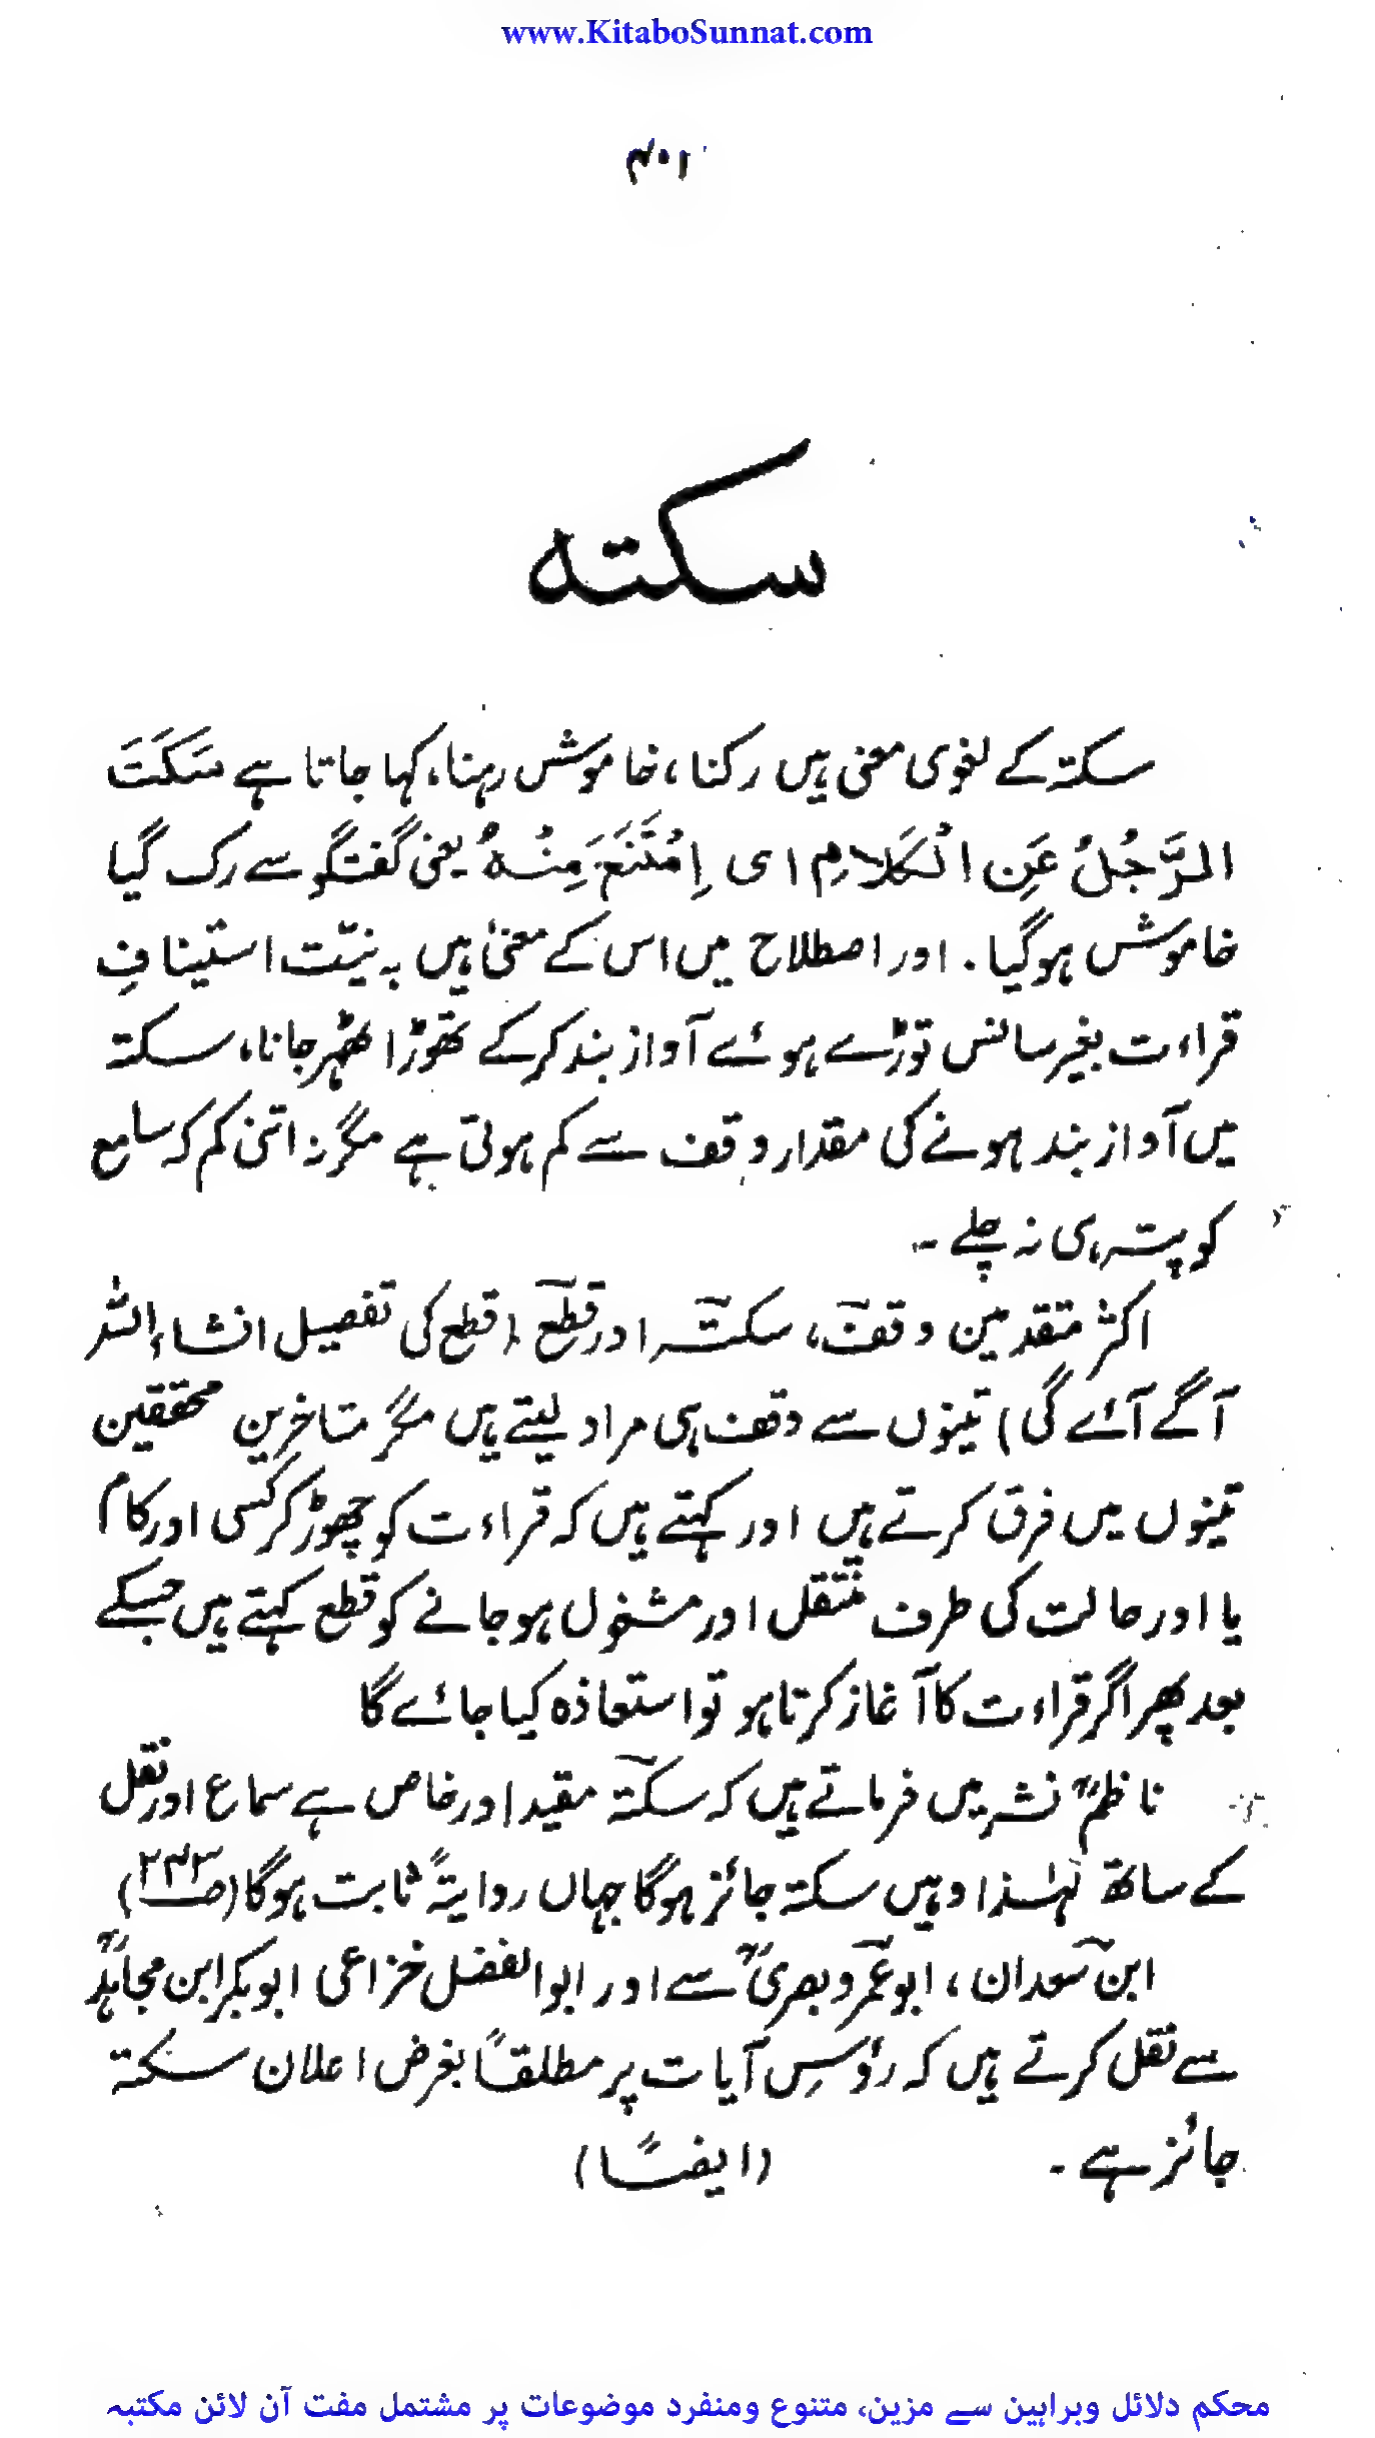 www.KitaboSunnat.com
۴۰۱
سکتہ
سکتہ کے لغوی معنی ہیں رکنا، خاموش رہنا، کہا جاتا ہے سَکَتَ
الرَّجُلُ عَنِ الْکَلَامِ ای اِمْتَنَعَ مِنْہُ یعنی گفتگو سے رک گیا
خاموش ہوگیا۔ اور اصطلاح میں اس کے معنیٰ ہیں بہ نیّت استینافِ
قراءت بغیر سانس توڑے ہوئے آواز بند کرکے تھوڑا ٹھہر جانا، سکتہ
میں آواز بند ہونے کی مقدار وقف سے کم ہوتی ہے مگر نہ اتنی کم کہ سامع
کو پتہ ہی نہ چلے ۔
اکثر متقدمین وقف، سکتہ اور قطع (قطع کی تفصیل انشاء اللہ
آگے آئے گی) تینوں سے وقف ہی مراد لیتے ہیں مگر متاخرین محققین
تینوں میں فرق کرتے ہیں اور کہتے ہیں کہ قراءت کو چھوڑ کر کسی اور کام
یا اور حالت کی طرف منتقل اور مشغول ہوجانے کو قطع کہتے ہیں جسکے
بعد پھر اگر قراءت کا آغاز کرتا ہو تو استعاذہ کیا جائے گا
ناظمؒ نشر میں فرماتے ہیں کہ سکتہ مقید اور خاص ہے سماع اور نقل
کے ساتھ لہٰذا وہیں سکتہ جائز ہوگا جہاں روایتہً ثابت ہوگا (صـ۲۴۳)
ابن سعدان، ابو عمرو بصریؒ سے اور ابوالفضل خزاعی ابوبکر ابن مجاہدؒ
سے نقل کرتے ہیں کہ رؤسِ آیات پر مطلقاً بغرض اعلان سکتہ
جائز ہے ۔ (ایضًا)
محکم دلائل وبراہین سے مزین، متنوع ومنفرد موضوعات پر مشتمل مفت آن لائن مکتبہ